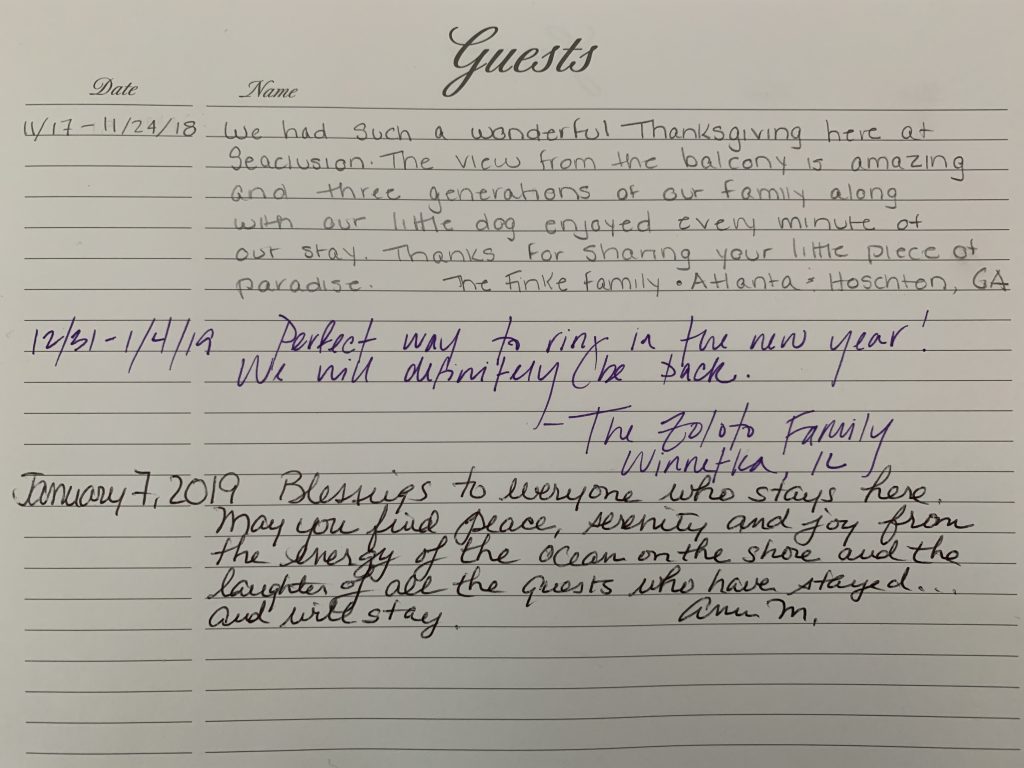 Guests
Date Name
11/17 - 11/24/18 We had such a wonderful Thanksgiving here at
Seaclusion. The view from the balcony is amazing
and three generations of our family along
with our little dog enjoyed every minute of
our stay. Thanks for sharing your little piece of
paradise. The Finke family • Atlanta • Hoschton, GA
12/31 - 1/4/19 Perfect way to ring in the new year!
We will definitely be back.
- The Zoloto Family
Winnetka, IL
January 7, 2019 Blessings to everyone who stays here.
May you find peace, serenity and joy from
the energy of the ocean on the shore and the
laughter of all the guests who have stayed...
and will stay. Ann M.